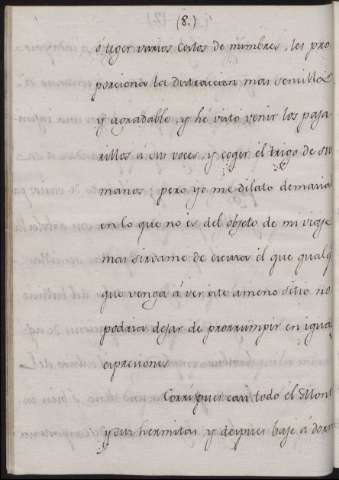 (8.)
ó teger varios Cestos de mimbres, les pro
porciona la distraccion mas sencilla
y agradable, y he visto venir los paja
rillos á sus voces, y coger el trigo de su
manos; pero yo me dilato demasia
en lo que no es del objeto de mi viage
mas sirvame de escusa él que qualq
que venga á ver este ameno sitio no
podria dejar de prorrumpir en igua
expresiones.
Corri pues casi todo el Mont
y sus hermitas, y despues baje á dorm